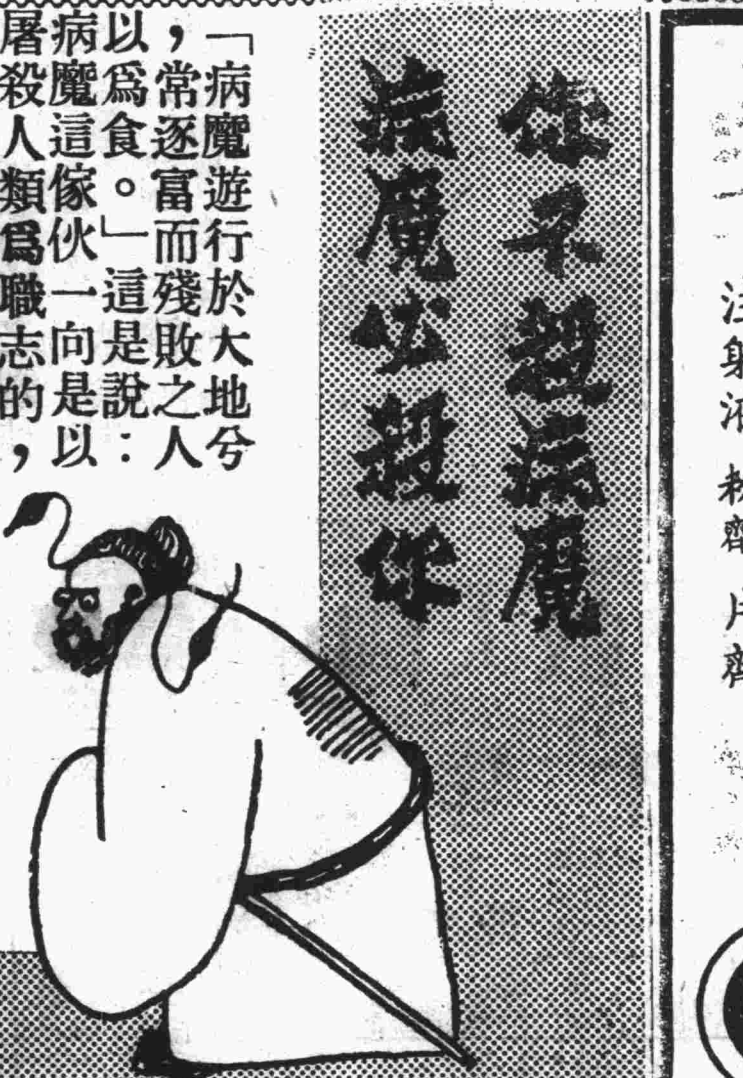 注射液 粉劑 片劑
你不殺病魔
病魔必殺你
「病魔遊行於大地兮
，常逐富而殘敗之人
以爲食。」這是說：
病魔這傢伙一向是以
屠殺人類爲職志的，